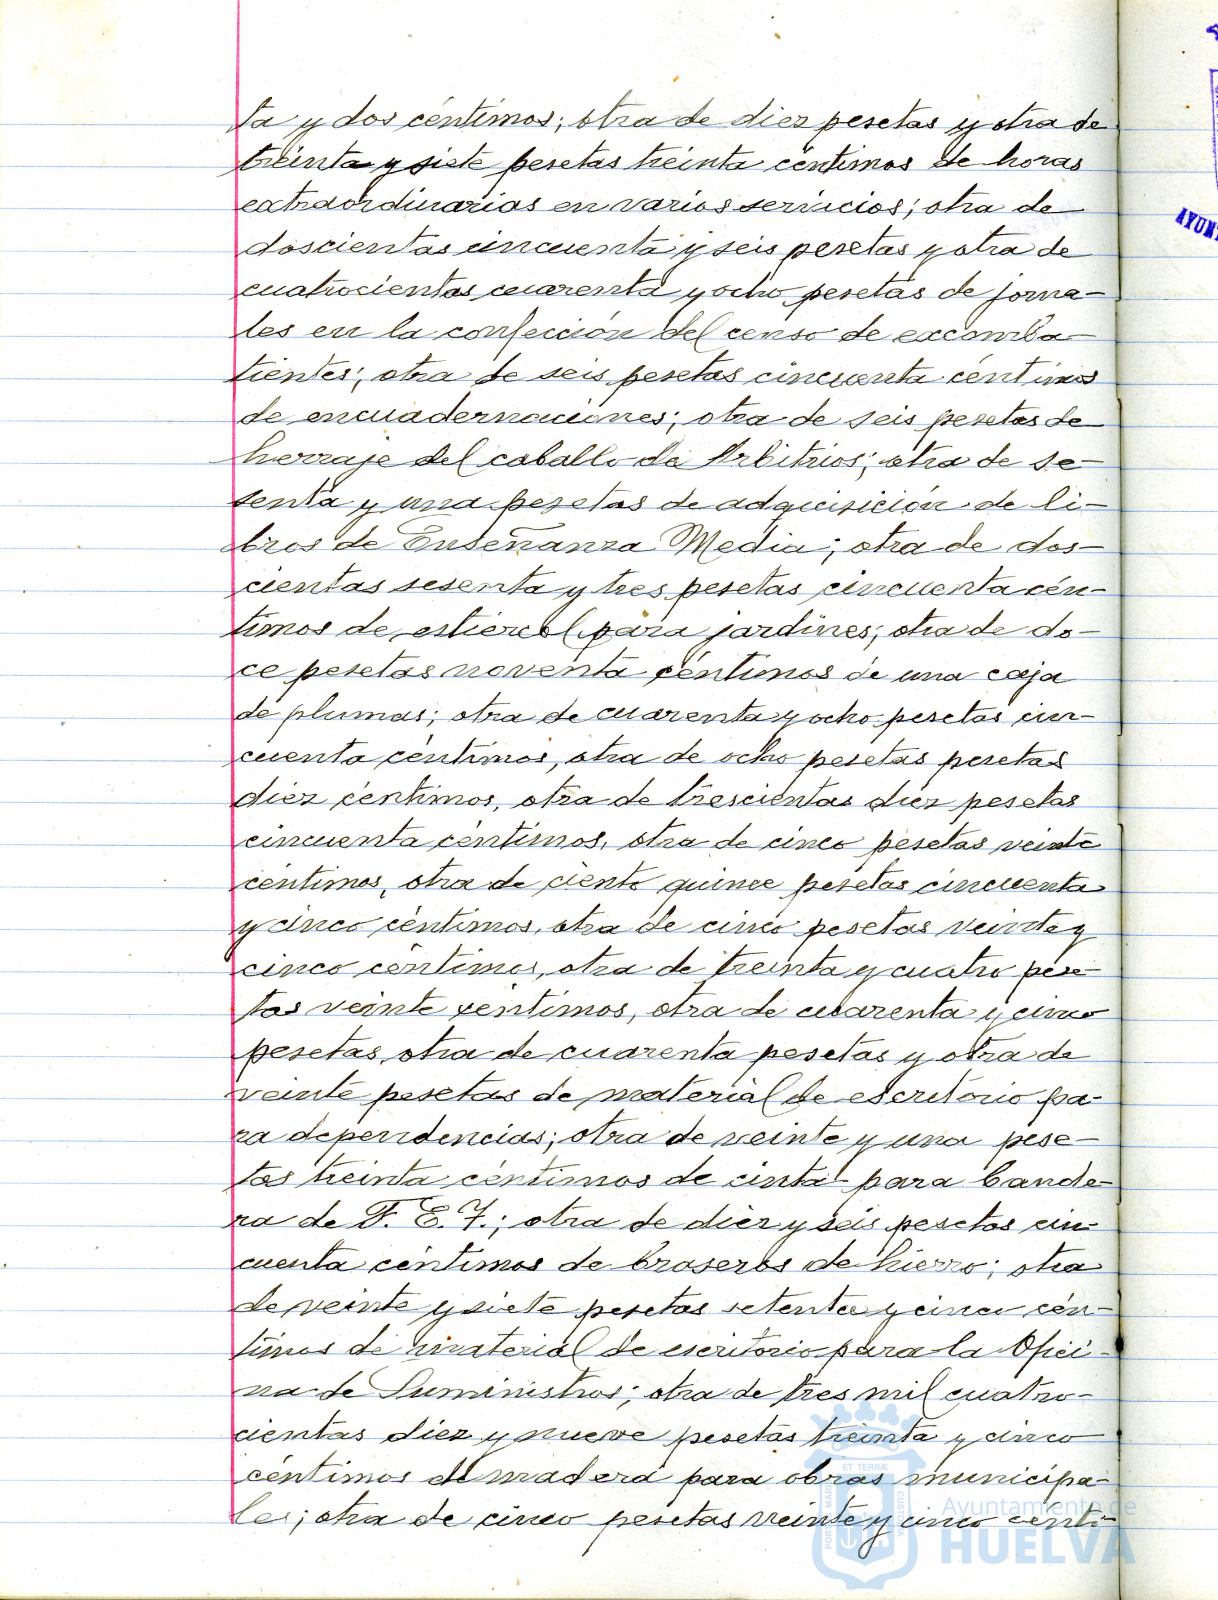 ta y dos céntimos; otra de diez pesetas y otra de
treinta y siete pesetas treinta céntimos de horas
extraordinarias en varios servicios; otra de
doscientas cincuenta y seis pesetas y otra de
cuatrocientas cuarenta y ocho pesetas de jorna-
les en la confección del censo de excomba-
tientes; otra de seis pesetas cincuenta céntimos
de encuadernaciones; otra de seis pesetas de
herraje del caballo de Arbitrios; otra de se-
senta y una pesetas de adquisición de li-
bros de Enseñanza Media; otra de dos-
cientas sesenta y tres pesetas cincuenta cén-
timos de estiércol para jardines; otra de do-
ce pesetas noventa céntimos de una caja
de plumas; otra de cuarenta y ocho pesetas cin-
cuenta céntimos, otra de ocho pesetas pesetas
diez céntimos, otra de trescientas diez pesetas
cincuenta céntimos, otra de cinco pesetas veinte
céntimos, otra de ciento quince pesetas cincuenta
y cinco céntimos, otra de cinco pesetas veinte y
cinco céntimos, otra de treinta y cuatro pese-
tas veinte céntimos, otra de cuarenta y cinco
pesetas, otra de cuarenta pesetas y otra de
veinte pesetas de material de escritorio pa-
ra dependencias; otra de veinte y una pese-
tas treinta céntimos de cinta para bande-
ra de F. E. T.; otra de diez y seis pesetas cin-
cuenta céntimos de braseros de hierro; otra
de veinte y siete pesetas setenta y cinco cén-
timos de material de escritorio para la Ofici-
na de Suministros; otra de tres mil cuatro-
cientas diez y nueve pesetas treinta y cinco
céntimos de madera para obras municipa-
les; otra de cinco pesetas veinte y cinco cénti-
Ayuntamiento de
HUELVA